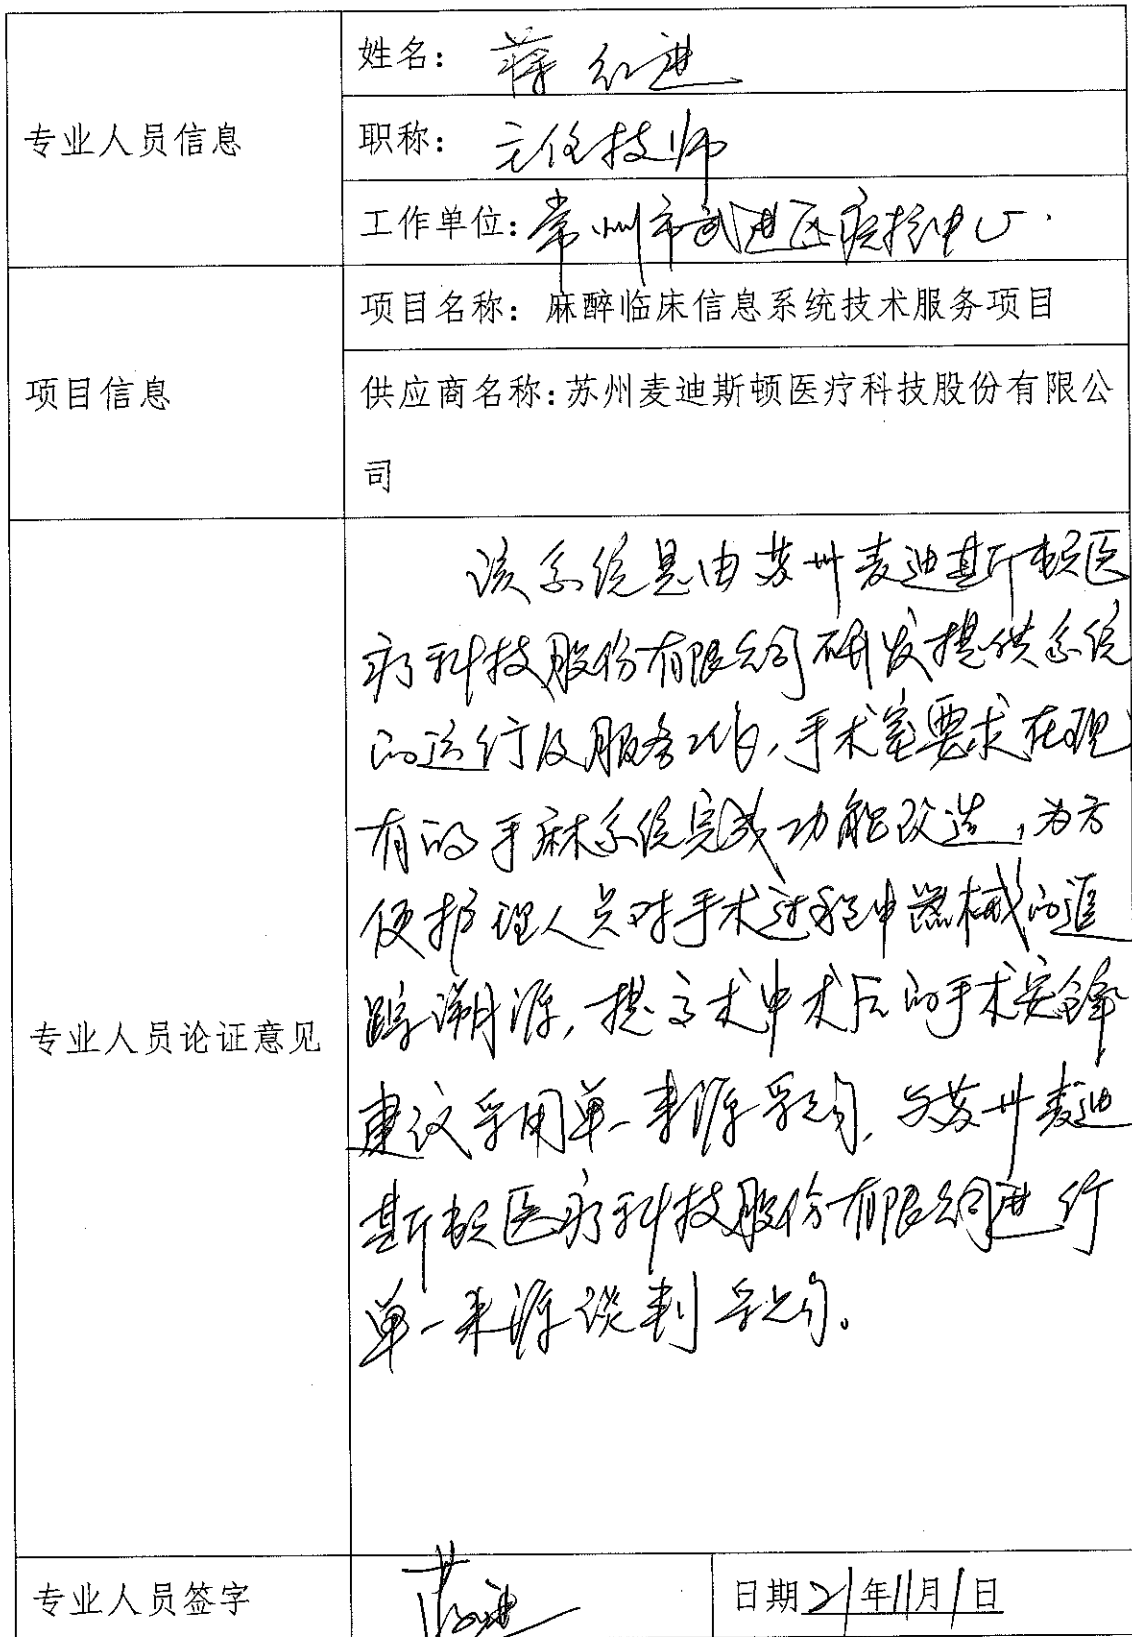 专业人员信息
姓名：蒋红进
职称：主任技师
工作单位：常州市武进区疾控中心.
项目信息
项目名称：麻醉临床信息系统技术服务项目
供应商名称：苏州麦迪斯顿医疗科技股份有限公
司
专业人员论证意见
该系统是由苏州麦迪斯顿医
疗科技股份有限公司研发提供系统
的运行及服务工作，手术室要求在现
有的手麻系统完成功能改造，为方
便护理人员对手术过程中器械的追
踪溯源，提高术中术后的手术安全
建议采用单一来源采购，与苏州麦迪
斯顿医疗科技股份有限公司进行
单一来源谈判采购。
专业人员签字
日期21年11月1日